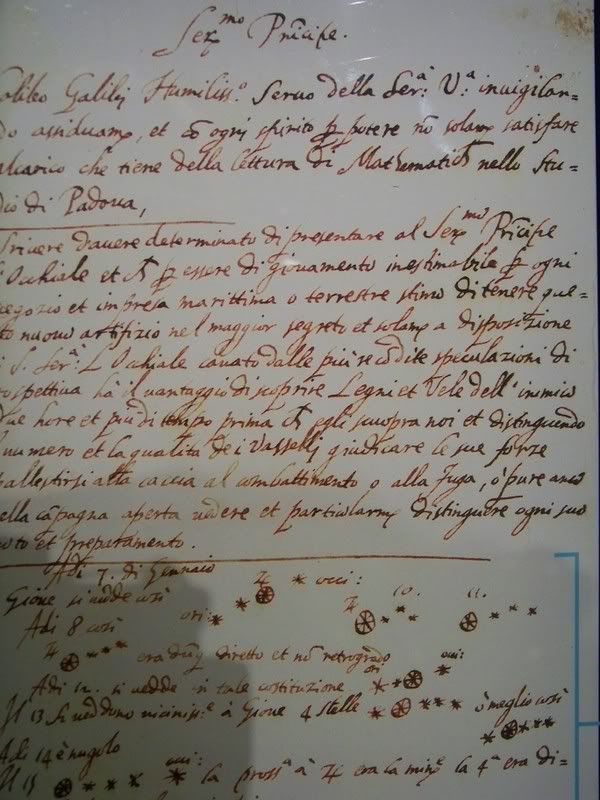 Ser.mo Prĩcipe.
Galileo Galilej Humiliss.o Servo della Ser.a V.a invigilan-
do assiduam.te, et cõ ogni spirito p potere nõ solam.te satisfare
alcarico che tiene della lettura di Mathematica nello Stu-
dio di Padova,
Scrivere d'avere determinato di presentare al Ser.mo Prĩcipe
l'Ochiale et p essere di giovamento inestimabile p ogni
negozio et impresa marittima o terrestre stimo di tenere que-
sto nuovo artifizio nel maggior segreto et solam.te a disposizione
di S. Ser.a L'Ochiale cavato dalle più recõdite speculazioni di
prospettiva hà il vantaggio di scoprire Legni et Vele dell'inimico
due hore et più di tempo prima ch egli scuopra noi et distinguendo
il numero et la qualità dei Vasselli giudicare le sue forze
pallestirsi alla caccia al combattimento o alla fuga, ò pure anco
nella cãpagna aperta vedere et particularm.te distinguere ogni suo
moto et preparamento.
Adi 7. di Gennaio
Gione si vedde così occi:
Adi 8 così ori: 10. 11.
era dũq diretto et nõ retrogrado
Adi 12. si vedde in tale costituzione ori occi:
Il 13 si veddono viciniss.e à Giove 4 stelle ò meglio così
Adi 14 è nugolo
Il 15 occi: la pross.a à era la min.e la 4.a era di-